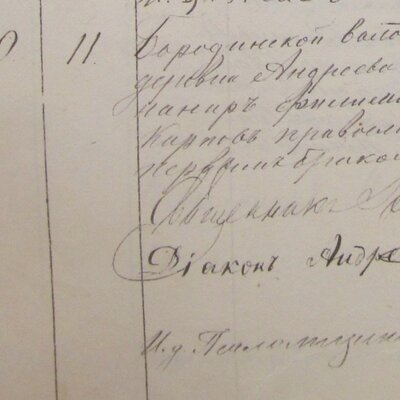 11. Бородинской воло
деревни Андреева
Карповъ правосл
первымъ брако
Священникъ
Діаконъ Андре
И. д. Псаломщик